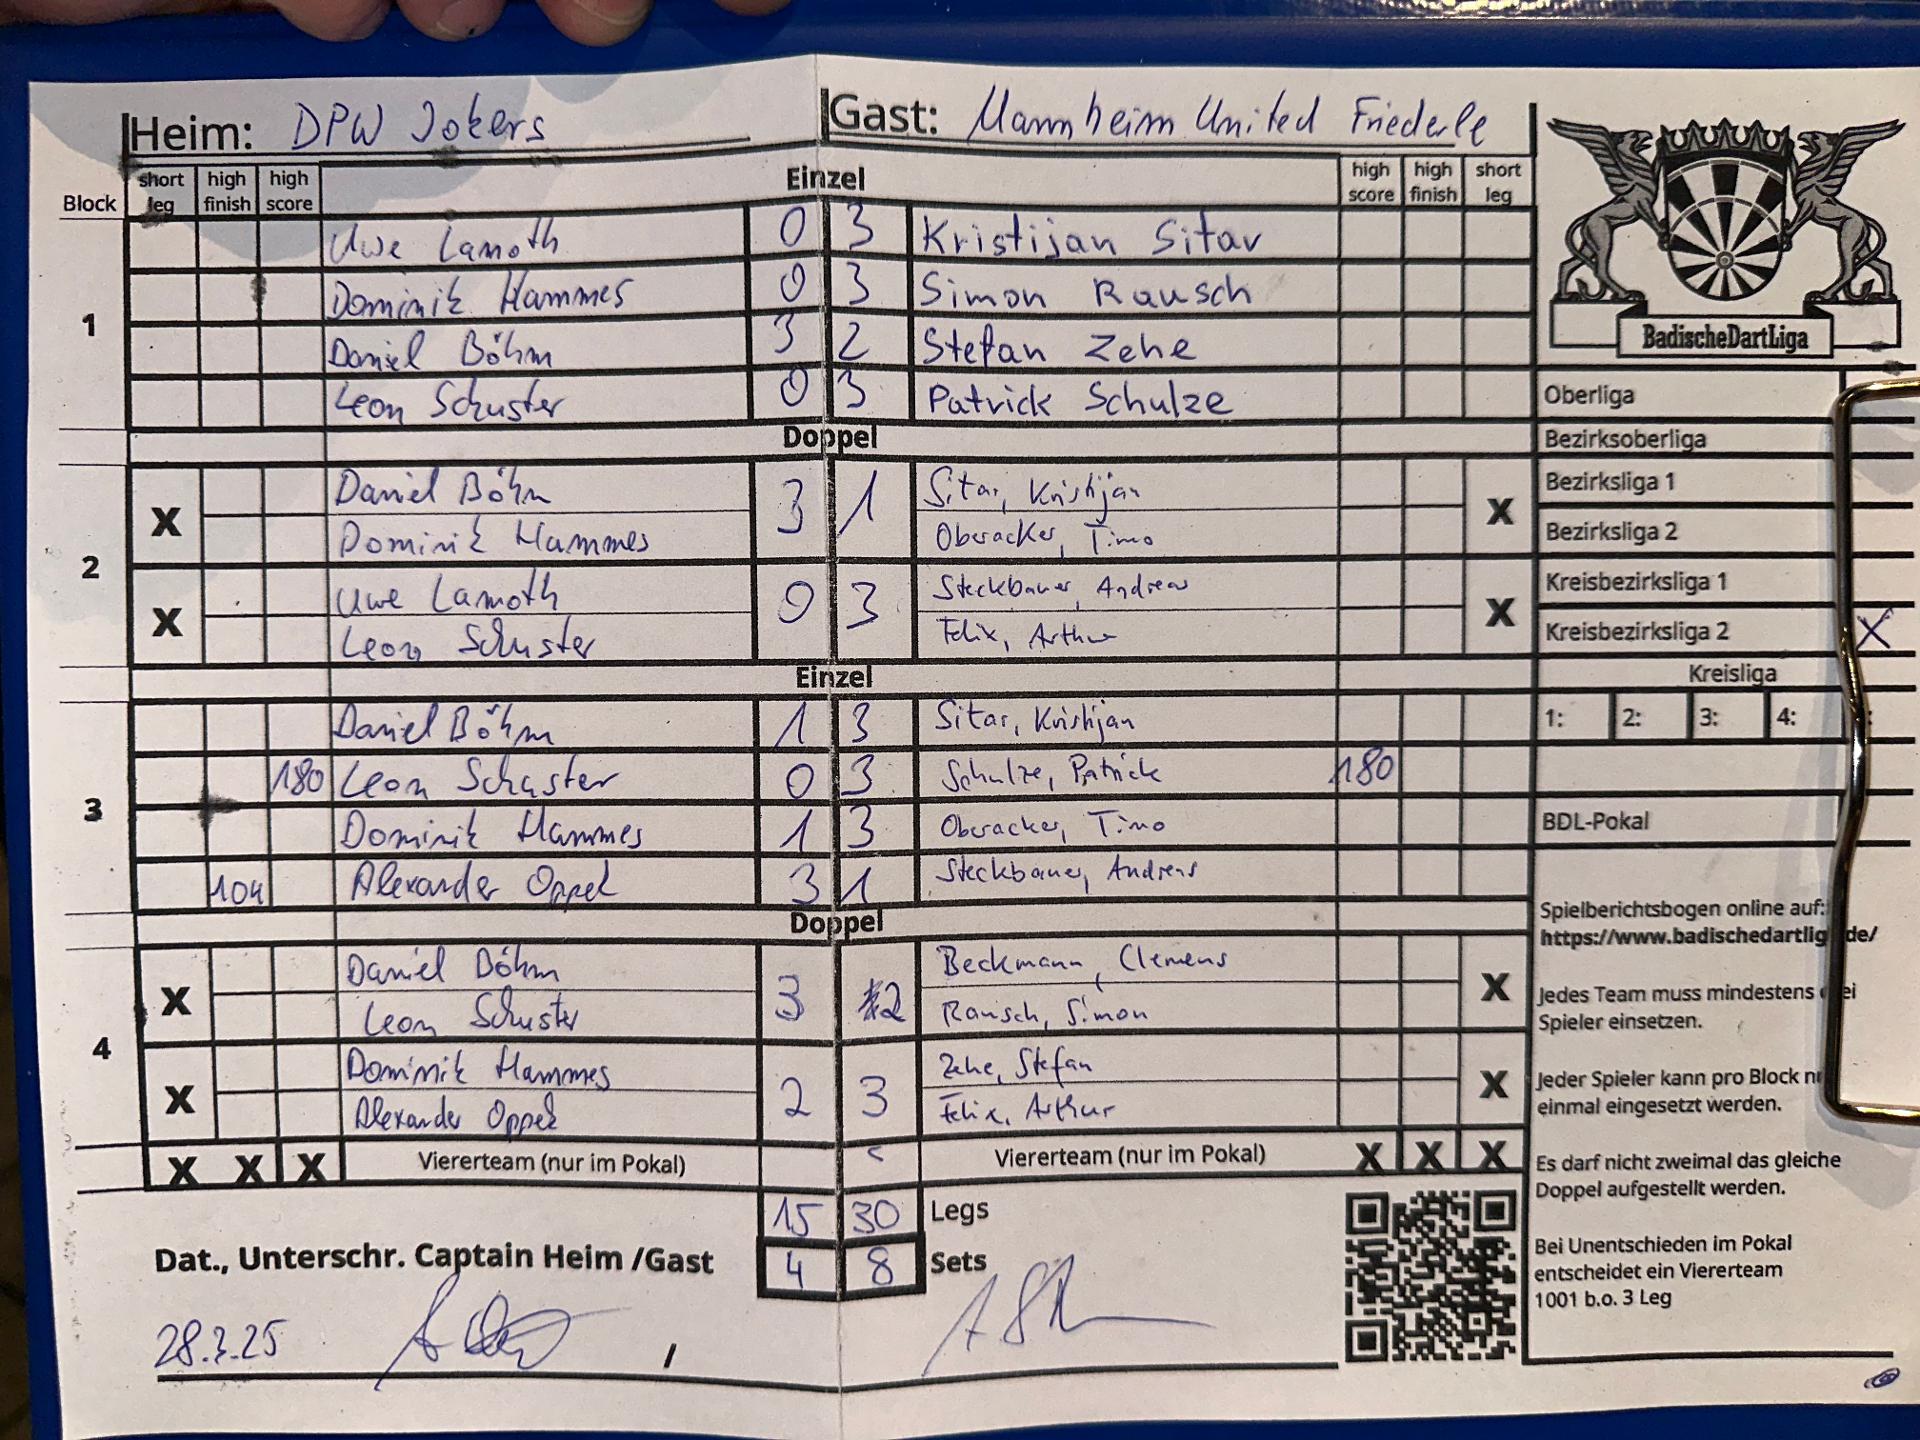 Heim: DPW Jokers Gast: Mannheim United Friederle
Block short leg high finish high score Einzel high score high finish short leg
1
Uwe Lamoth 0 3 Kristijan Sitar
Dominik Hammes 0 3 Simon Rausch
Daniel Böhm 3 2 Stefan Zehe
Leon Schuster 0 3 Patrick Schulze
Doppel
2
X Daniel Böhm 3 1 Sitar, Kristijan X
Dominik Hammes Oberacker, Timo
X Uwe Lamoth 0 3 Steckbauer, Andreas X
Leon Schuster Felix, Arthur
Einzel
3
Daniel Böhm 1 3 Sitar, Kristijan
180 Leon Schuster 0 3 Schulze, Patrick 180
Dominik Hammes 1 3 Oberacker, Timo
104 Alexander Oppel 3 1 Steckbauer, Andreas
Doppel
4
X Daniel Böhm 3 2 Beckmann, Clemens X
Leon Schuster Rausch, Simon
X Dominik Hammes 2 3 Zehe, Stefan X
Alexander Oppel Felix, Arthur
X X X Viererteam (nur im Pokal) Viererteam (nur im Pokal) X X X
15 30 Legs
4 8 Sets
Dat., Unterschr. Captain Heim /Gast
28.3.25 /
BadischeDartLiga
Oberliga
Bezirksoberliga
Bezirksliga 1
Bezirksliga 2
Kreisbezirksliga 1
Kreisbezirksliga 2 X
Kreisliga
1: 2: 3: 4: :
BDL-Pokal
Spielberichtsbogen online auf:
https://www.badischedartlig de/
Jedes Team muss mindestens ei
Spieler einsetzen.
Jeder Spieler kann pro Block n
einmal eingesetzt werden.
Es darf nicht zweimal das gleiche
Doppel aufgestellt werden.
Bei Unentschieden im Pokal
entscheidet ein Viererteam
1001 b.o. 3 Leg